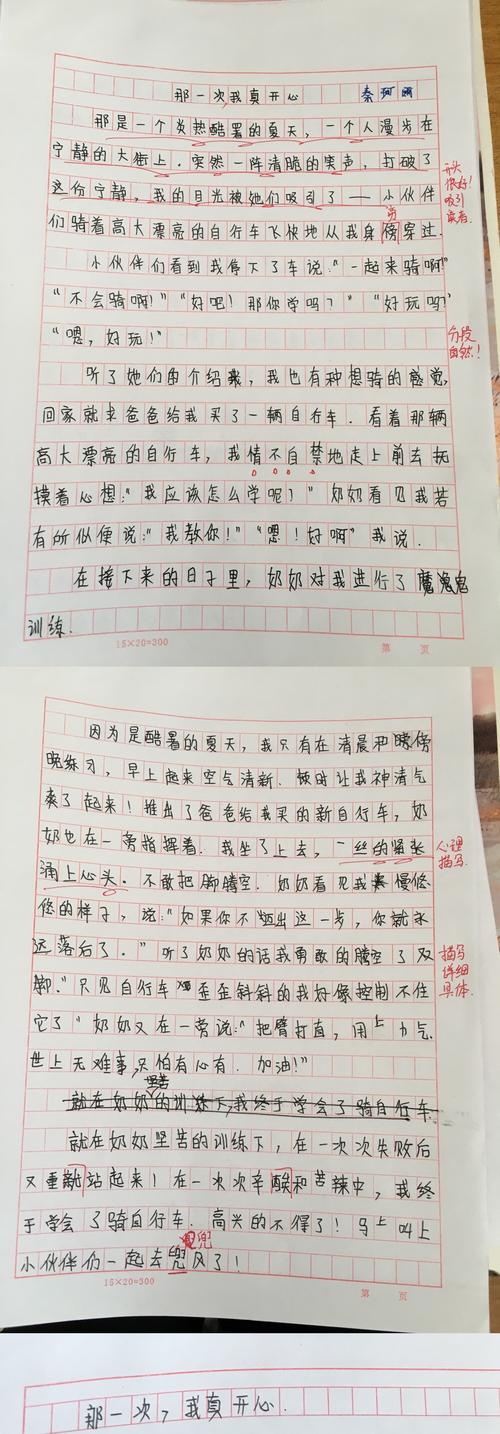 那一次,我真开心 秦珂
那是一个炎热酷暑的夏天,一个人漫步在
宁静的大街上.突然一阵清脆的笑声,打破了
这份宁静,我的目光被她们吸引了——小伙伴
们骑着高大漂亮的自行车飞快地从我身傍穿过.
旁
开头
很好!
吸引
读者.
小伙伴们看到我停下了车说:“一起来骑啊!”
“不会骑啊!”“好吧!那你学吗?”“好玩吗?”
“嗯,好玩!”
分段
自然!
听了她们的介绍,我也有种想骑的感觉,
回家就求爸爸给我买了一辆自行车.看着那辆
高大漂亮的自行车,我情不自禁地走上前去抚
摸着心想:“我应该怎么学呢?”奶奶看见我若
有所似便说:“我教你!”“嗯!好啊”我说.
在接下来的日子里,奶奶对我进行了魔鬼
训练.
15×20=300 第 页
因为是酷暑的夏天,我只有在清晨和傍
晚练习,早上起来空气清新.顿时让我神清气
爽了起来!推出了爸爸给我买的新自行车,奶
奶也在一旁指挥着.我坐了上去,一丝的紧张
涌上心头.不敢把脚腾空.奶奶看见我慢悠
悠的样子,说:“如果你不迈出这一步,你就永
远落后了.”听了奶奶的话我勇敢的腾空了双
脚.”只见自行车歪歪斜斜的我好像控制不住
它了”奶奶又在一旁说:“把臂打直,用上力气.
世上无难事,只怕有心有.加油!”
心理
描写.
描写
详细
具体.
就在奶奶坚苦的训练下,我终于学会了骑自行车.
就在奶奶坚苦的训练下,在一次次失败后
又重站起来!在一次次辛酸和苦辣中,我终
于学会了骑自行车.高兴的不得了!马上叫上
小伙伴们一起去兜风了!
兜
15×20=300 第 页
那一次,我真开心.